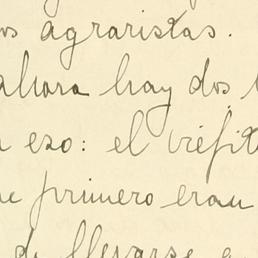 os agraristas.
ahora hay dos
eso: el viejit
primero eran
de llevarse a